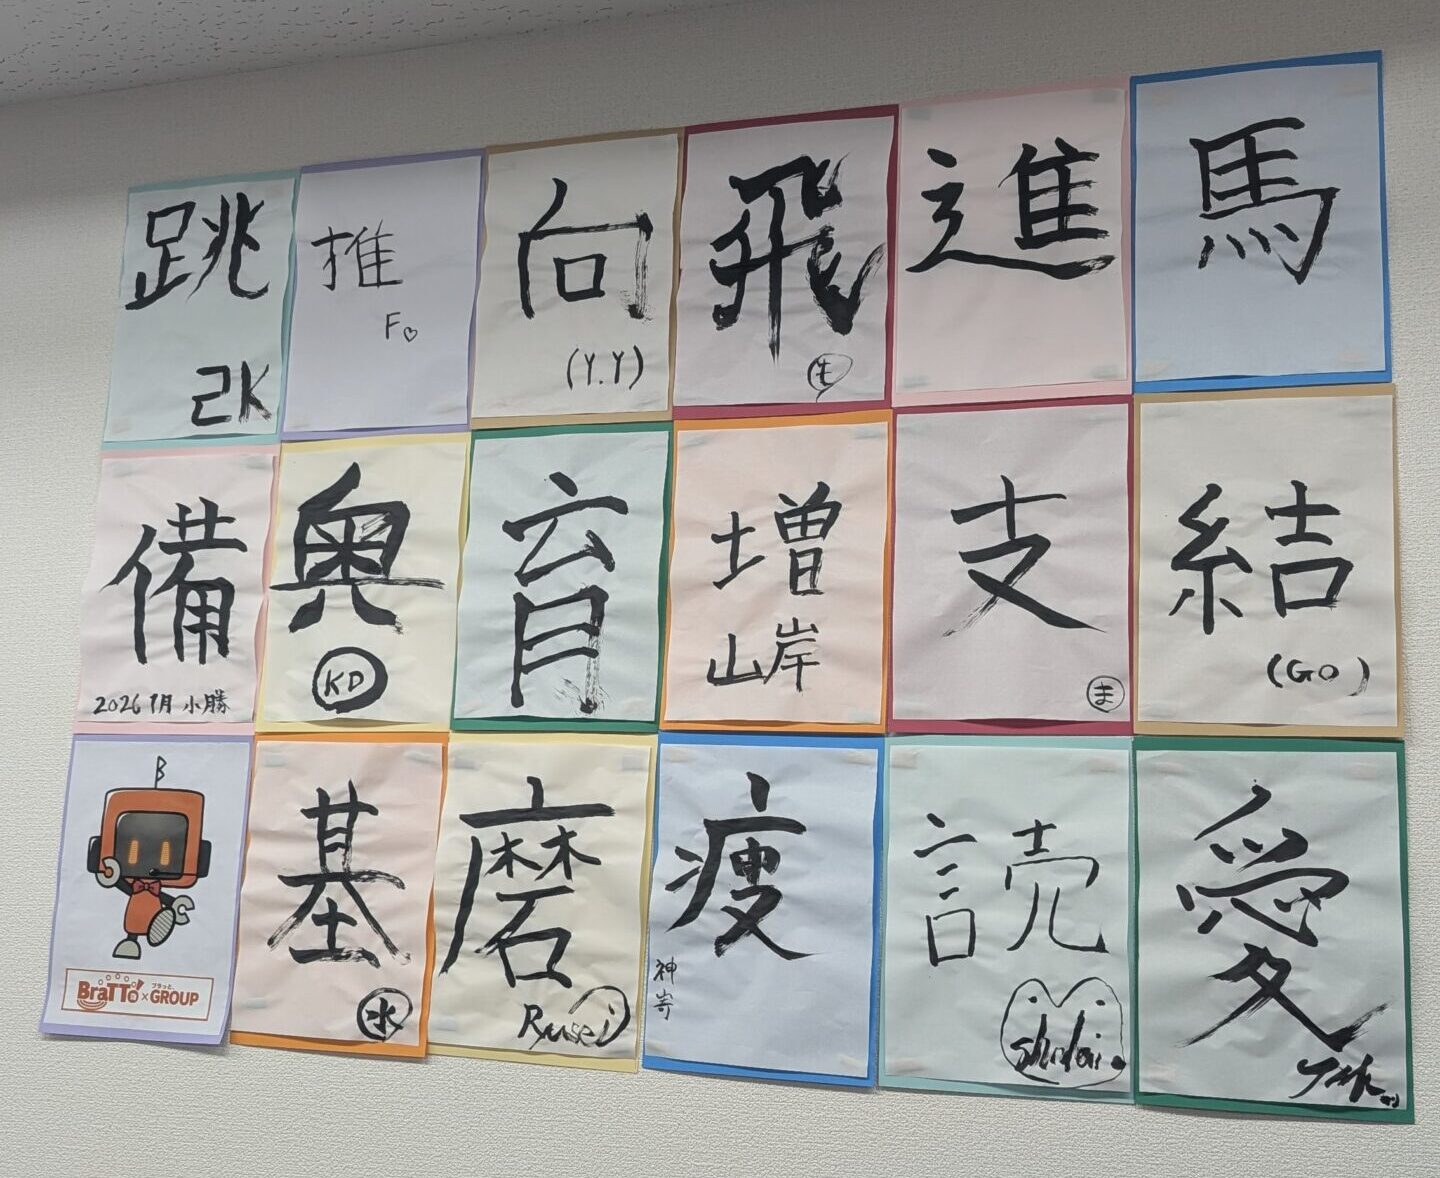 跳
2K
推
F♡
向
(Y.Y)
飛
進
馬
備
2026 1月 小勝
奥
KD
育
増
山岸
支
ま
結
(GO)
B
BraTTo!
ブラっと
×GROUP
基
水
磨
Ryusei
痩
神嵜
読
愛